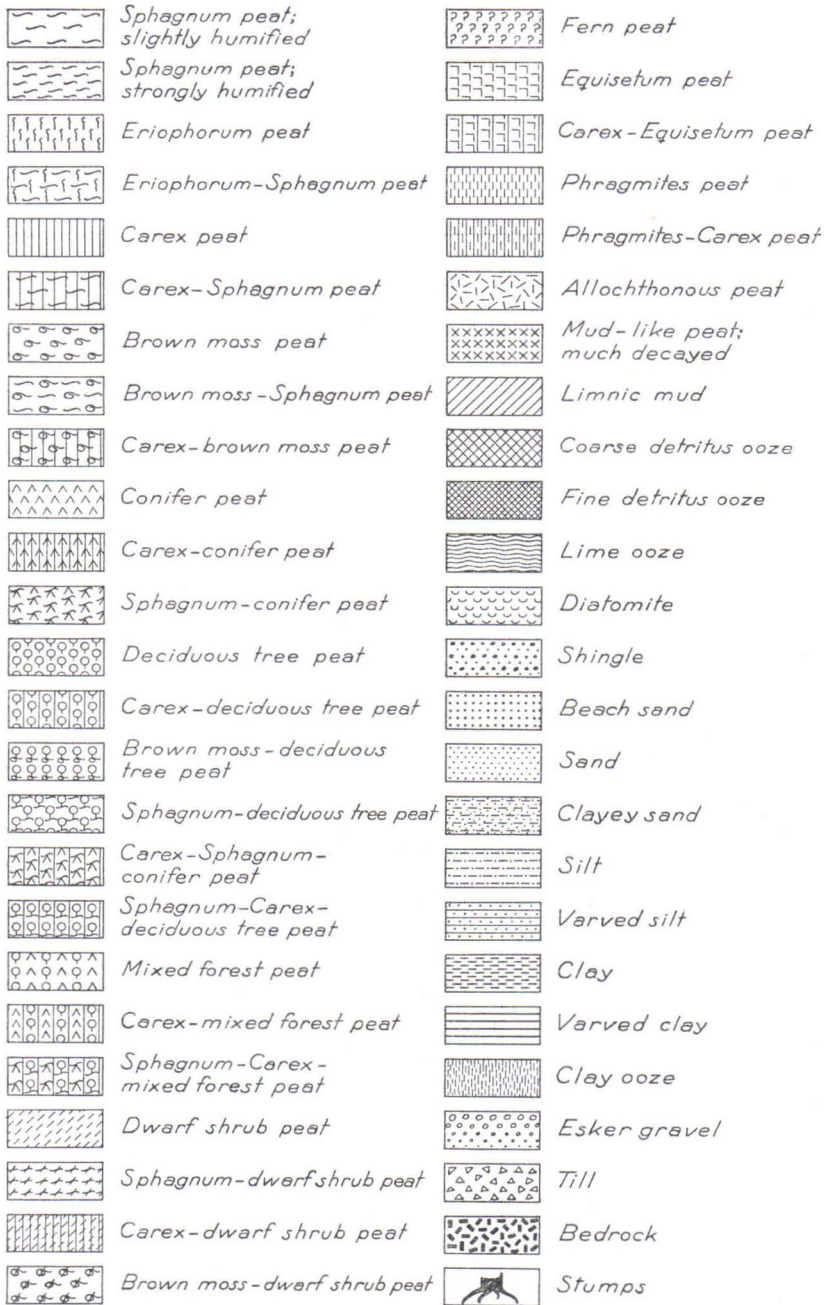 Sphagnum peat;
slightly humified
Sphagnum peat;
strongly humified
Eriophorum peat
Eriophorum-Sphagnum peat
Carex peat
Carex-Sphagnum peat
Brown moss peat
Brown moss-Sphagnum peat
Carex-brown moss peat
Conifer peat
Carex-conifer peat
Sphagnum-conifer peat
Deciduous tree peat
Carex-deciduous tree peat
Brown moss-deciduous
tree peat
Sphagnum-deciduous tree peat
Carex-Sphagnum-
conifer peat
Sphagnum-Carex-
deciduous tree peat
Mixed forest peat
Carex-mixed forest peat
Sphagnum-Carex-
mixed forest peat
Dwarf shrub peat
Sphagnum-dwarf shrub peat
Carex-dwarf shrub peat
Brown moss-dwarf shrub peat
Fern peat
Equisetum peat
Carex-Equisetum peat
Phragmites peat
Phragmites-Carex peat
Allochthonous peat
Mud-like peat;
much decayed
Limnic mud
Coarse detritus ooze
Fine detritus ooze
Lime ooze
Diatomite
Shingle
Beach sand
Sand
Clayey sand
Silt
Varved silt
Clay
Varved clay
Clay ooze
Esker gravel
Till
Bedrock
Stumps